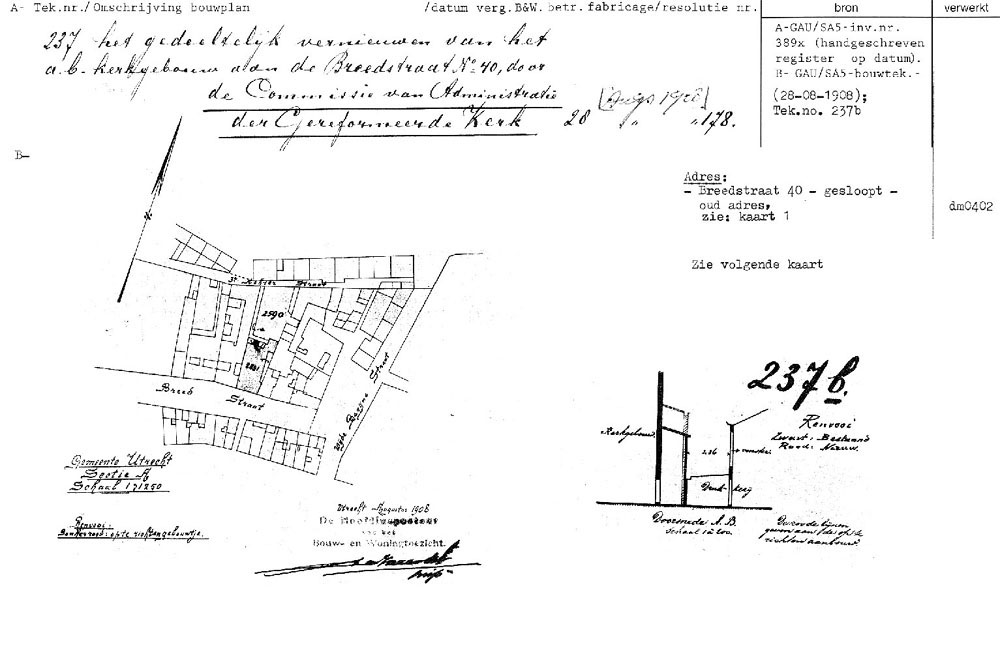 A- Tek.nr./Omschrijving bouwplan /datum verg.B&W. betr. fabricage/resolutie nr. bron verwerkt
237 het gedeeltelijk vernieuwen van het
a.b. kerkgebouw aan de Breedstraat No 40, door
de Commissie van Administratie
der Gereformeerde Kerk 28 [Augs 1908] " 178.
A-GAU/SA5-inv.nr.
389x (handgeschreven
register op datum).
B- GAU/SA5-bouwtek.-
(28-08-1908);
Tek.no. 237b
B-
Adres:
- Breedstraat 40 - gesloopt -
oud adres,
zie: kaart 1
dm0402
Zie volgende kaart
Straat
2590
2591
Breed Straat
Straat
Gemeente Utrecht
Sectie A
Schaal 1 à 1250
Renvooi:
Utrecht Augustus 1908
De Hoofdinspecteur
van het
Bouw- en Woningtoezicht.
237b.
Renvooi
Zwart: Bestaand
Rood: Nieuw.
Kerkgebouw
2.36
Doorsnede A.B.
Schaal 1 à 100.